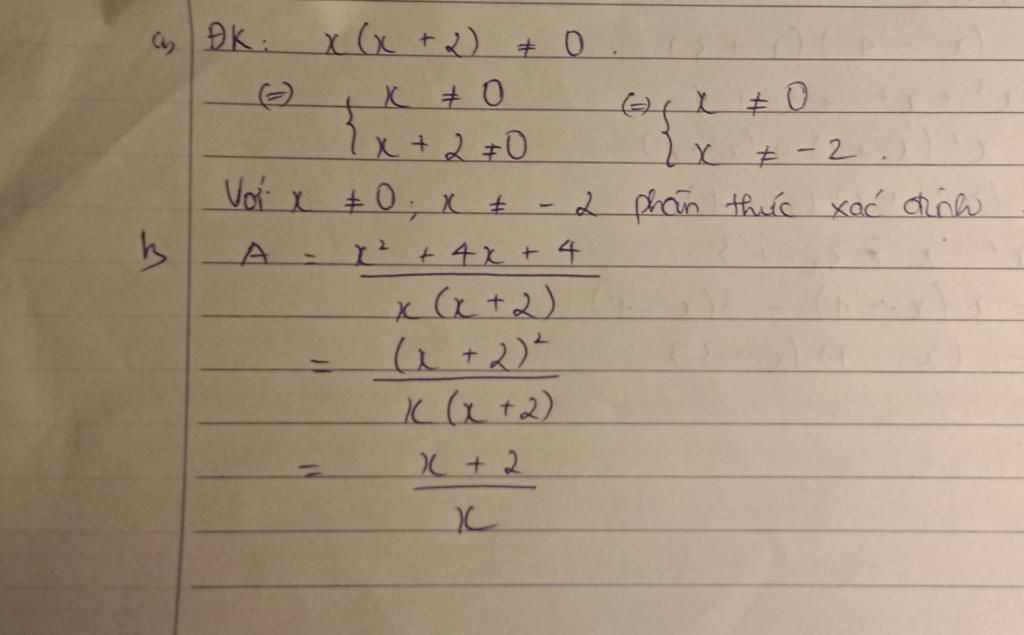 a, ĐK: x(x + 2) ≠ 0.
(=) { x ≠ 0 (=) { x ≠ 0
x + 2 ≠ 0 x ≠ -2.
Với x ≠ 0; x ≠ -2 phân thức xác định
b, A = x² + 4x + 4
x(x+2)
= (x + 2)²
x(x+2)
= x + 2
x